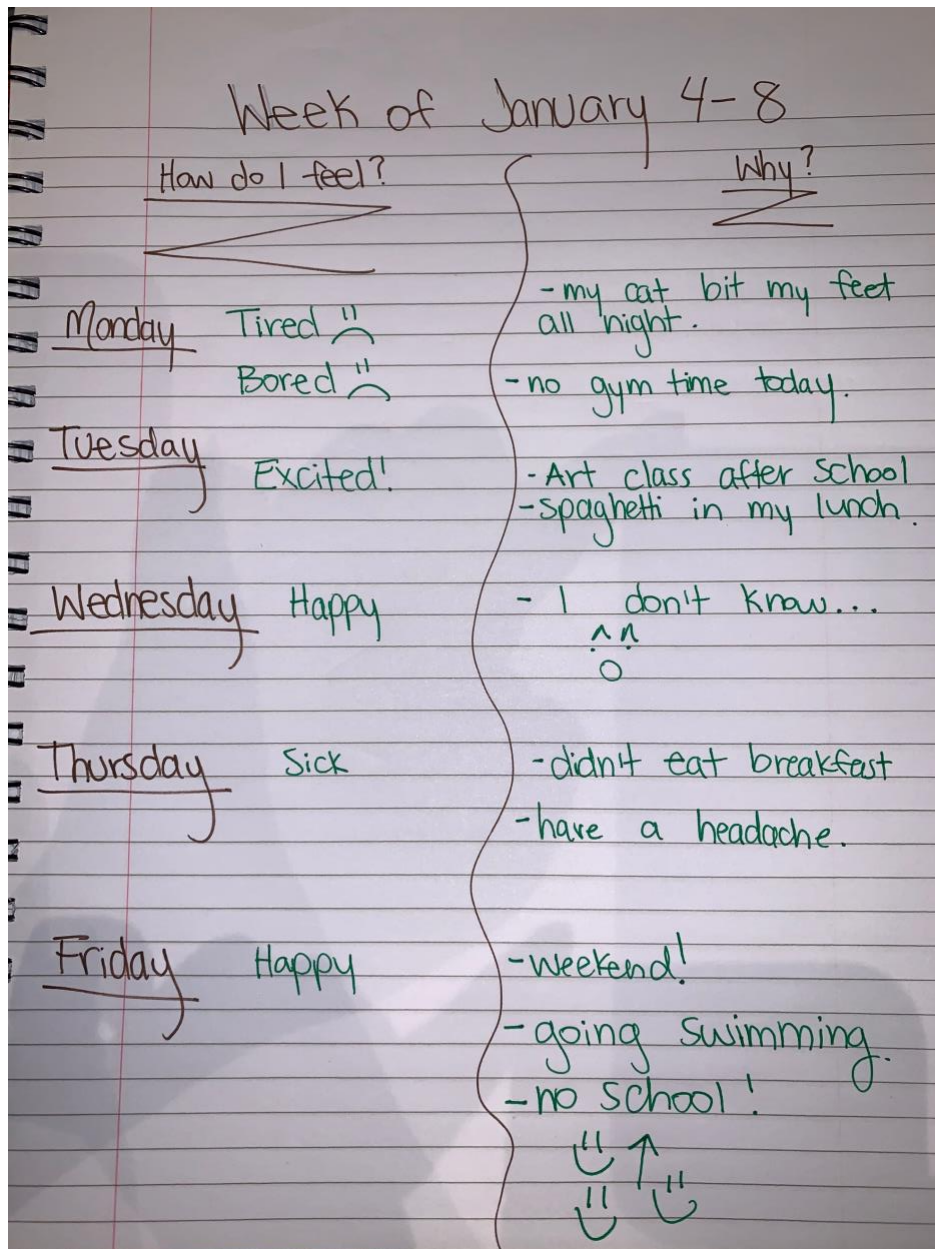 Week of January 4-8
How do I feel?
Why?
Monday Tired
- my cat bit my feet
all night.
Bored
- no gym time today.
Tuesday
Excited!
- Art class after school
- spaghetti in my lunch.
Wednesday Happy
- I don't know...
Thursday Sick
- didn't eat breakfast
- have a headache.
Friday Happy
- weekend!
- going swimming.
- no school!